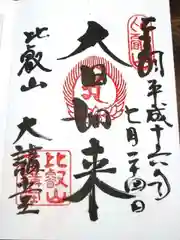 平成十六年
七月二十四日
大日如来
比叡山
大講堂
比叡山